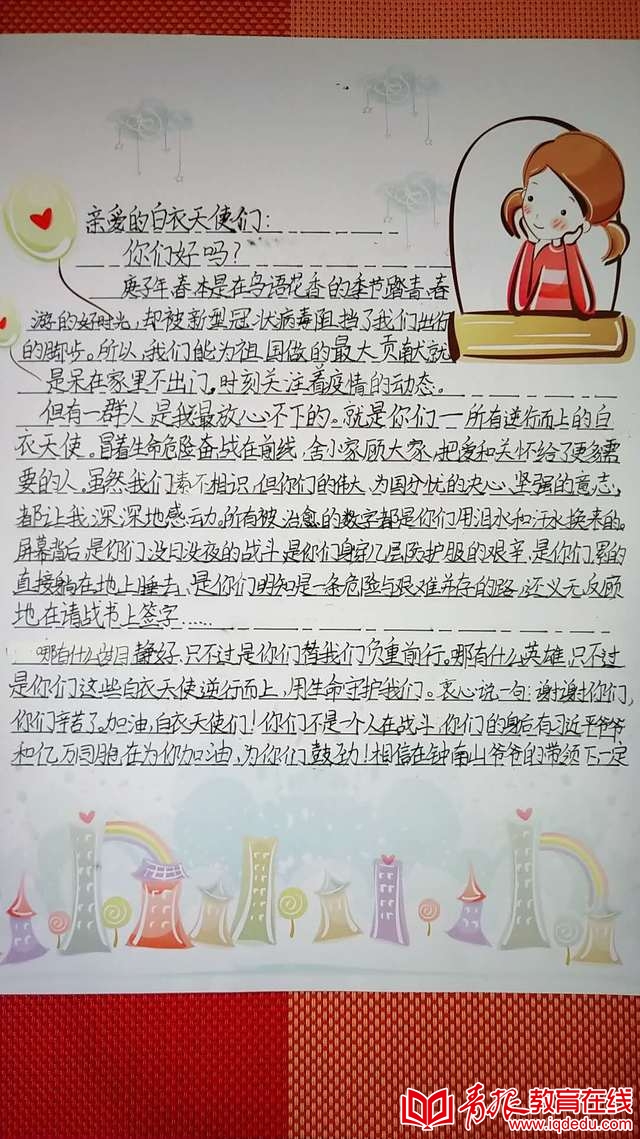 亲爱的白衣天使们:
你们好吗?
庚子年春本是在鸟语花香的季节踏青春
游的好时光,却被新型冠状病毒阻挡了我们出行
的脚步。所以,我们能为祖国做的最大贡献就
是呆在家里不出门。时刻关注着疫情的动态。
但有一群人是我最放心不下的。就是你们一所有逆行而上的白
衣天使。冒着生命危险奋战在前线,舍小家顾大家,把爱和关怀给了更多需
要的人。虽然我们素不相识,但你们的伟大、为国分忧的决心、坚强的意志,
都让我深深地感动。所有被治愈的数字都是你们用泪水和汗水换来的。
屏幕背后,是你们没日没夜的战斗,是你们身穿几层防护服的艰辛,是你们累的
直接躺在地上睡去,是你们明知是一条危险与艰难并存的路,还义无反顾
地在请战书上签字……
哪有什么岁月静好,只不过是你们替我们负重前行。哪有什么英雄,只不过
是你们这些白衣天使逆行而上,用生命守护我们。衷心说一句:谢谢你们,
你们辛苦了。加油,白衣天使们!你们不是一个人在战斗,你们的身后有习近平爷爷
和亿万同胞在为你加油,为你们鼓劲!相信在钟南山爷爷的带领下一定
青报教育在线
www.iqdedu.com